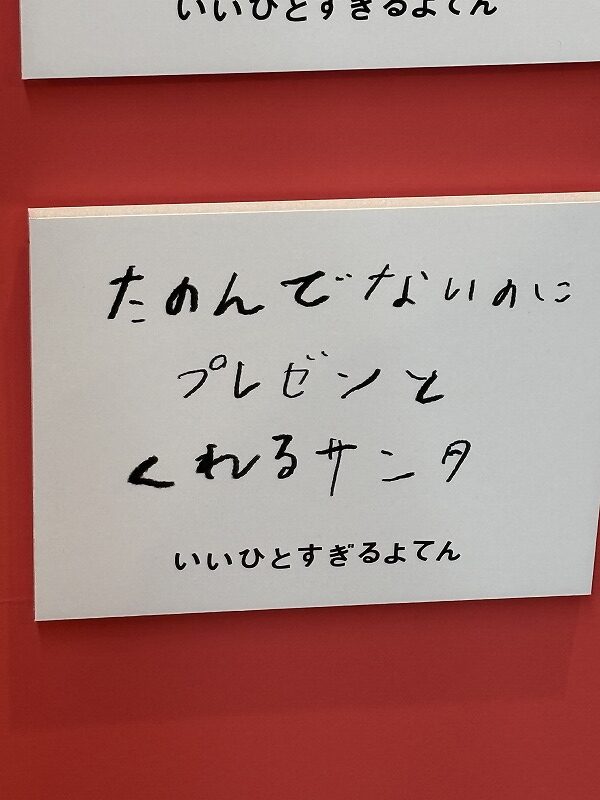 いいひとすぎるよてん
たのんでないのに
プレゼンと
くれるサンタ
いいひとすぎるよてん